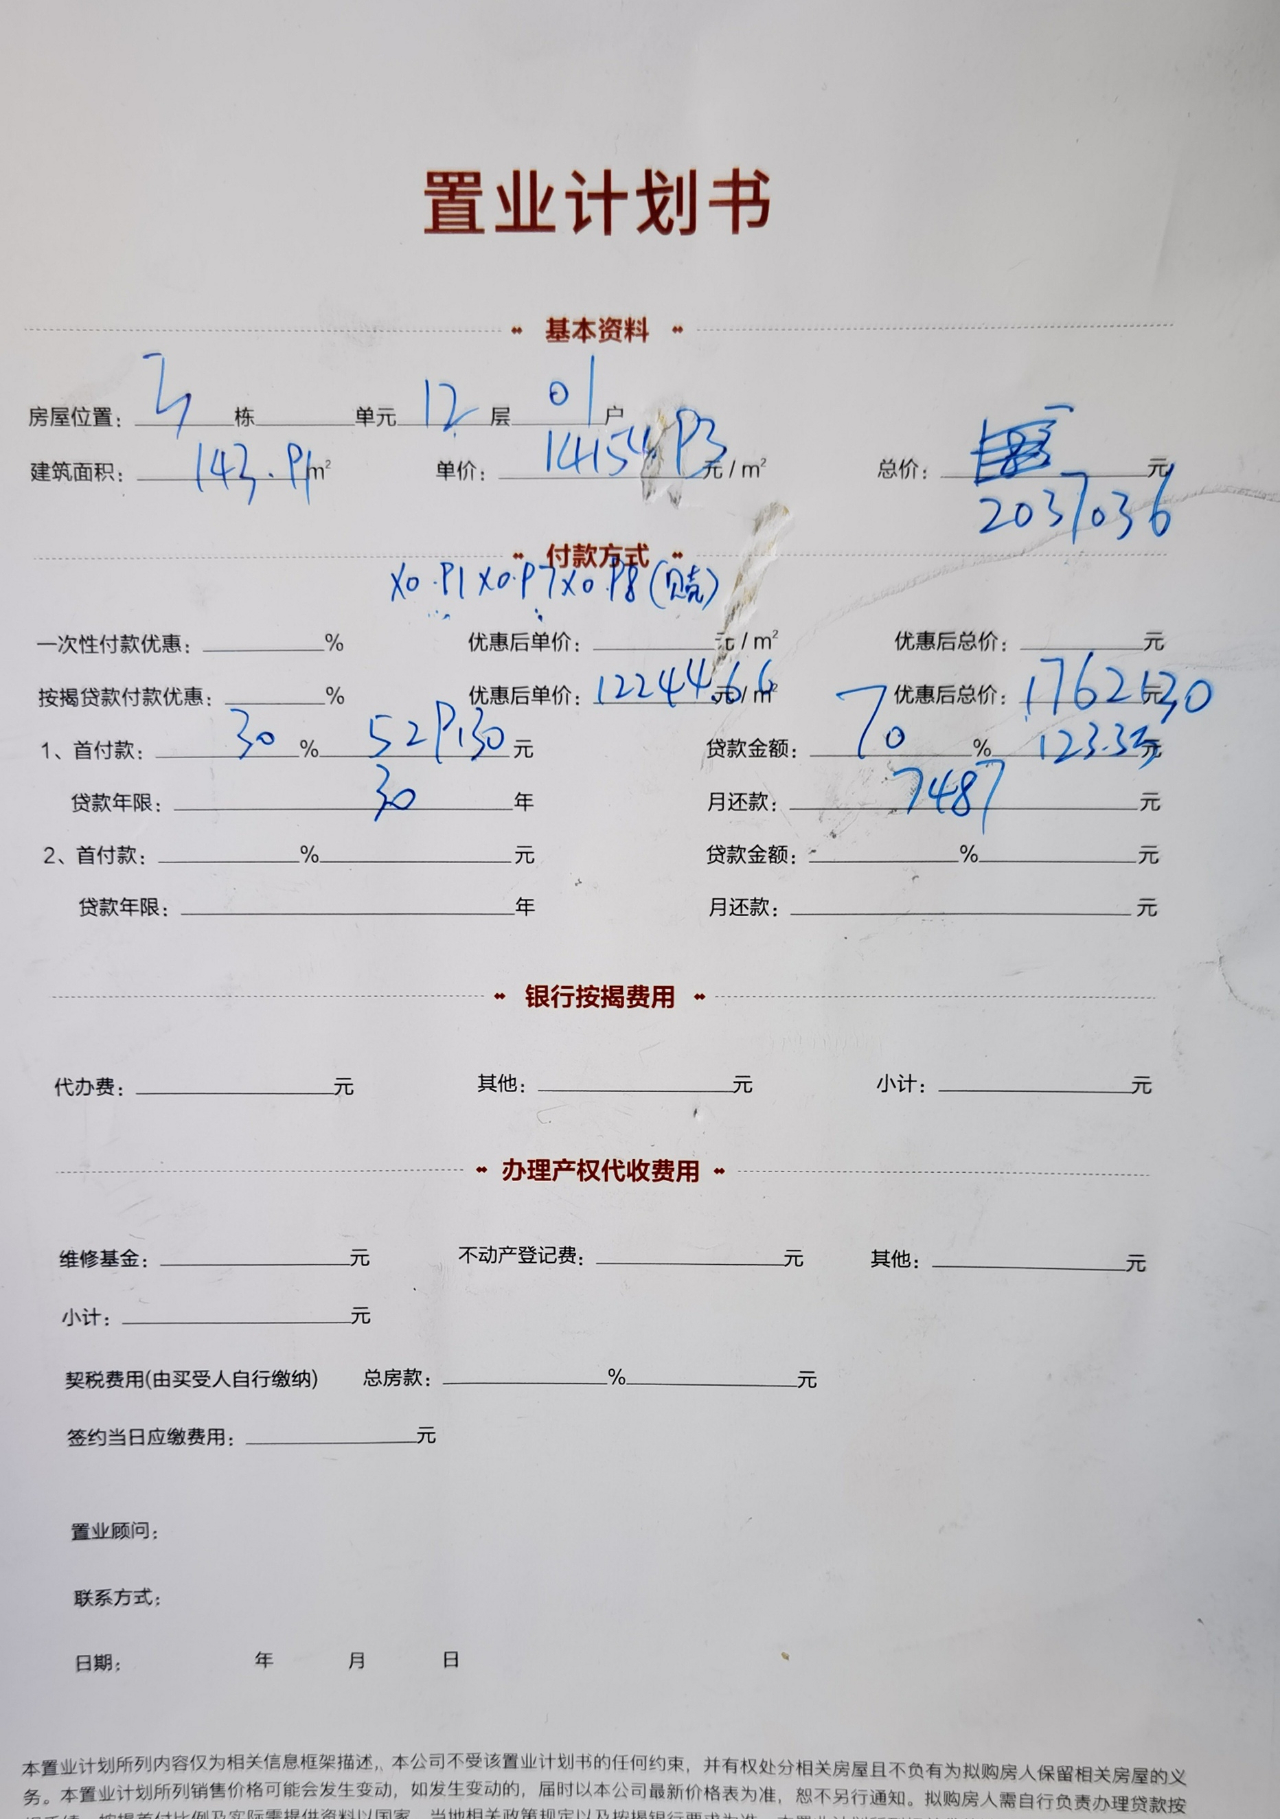 置业计划书
基本资料
房屋位置: 3 栋 单元 12 层 01 户
建筑面积: 143.91 m² 单价: 14154.93 元/m² 总价: 2037036 元
付款方式
X0.91X0.97X0.98(贝壳)
一次性付款优惠: % 优惠后单价: 元/m² 优惠后总价: 元
按揭贷款付款优惠: % 优惠后单价: 12244.66 元/m² 优惠后总价: 1762130 元
1、首付款: 30 % 529130 元 贷款金额: 70 % 123.3万 元
贷款年限: 30 年 月还款: 7487 元
2、首付款: % 元 贷款金额: % 元
贷款年限: 年 月还款: 元
银行按揭费用
代办费: 元 其他: 元 小计: 元
办理产权代收费用
维修基金: 元 不动产登记费: 元 其他: 元
小计: 元
契税费用(由买受人自行缴纳) 总房款: % 元
签约当日应缴费用: 元
置业顾问:
联系方式:
日期: 年 月 日
本置业计划所列内容仅为相关信息框架描述,, 本公司不受该置业计划书的任何约束，并有权处分相关房屋且不负有为拟购房人保留相关房屋的义
务。本置业计划所列销售价格可能会发生变动，如发生变动的，届时以本公司最新价格表为准，恕不另行通知。拟购房人需自行负责办理贷款按
揭手续，按揭首付比例及实际需提供资料以国家、当地相关政策规定以及按揭银行要求为准。